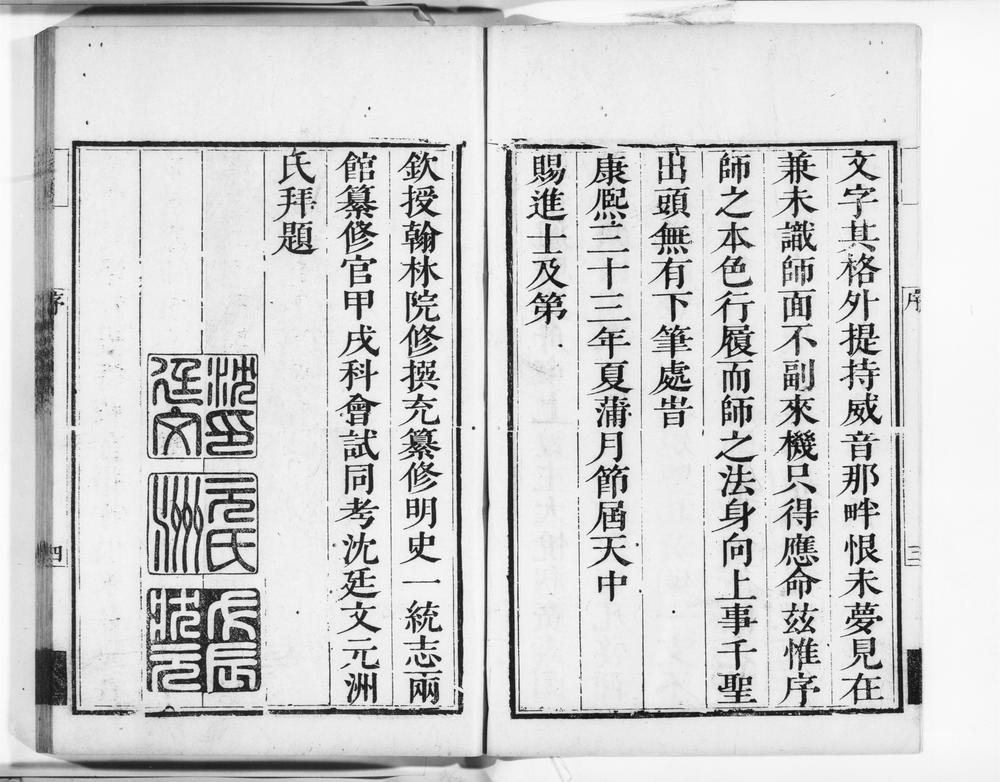 文字其格外提持威音那畔恨未夢見在
兼未識師面不副來機只得應命茲惟序
師之本色行履而師之法身向上事千聖
出頭無有下筆處旹
康熙三十三年夏蒲月節屆天中
賜進士及第
序
三
欽授翰林院修撰充纂修明史一統志兩
館纂修官甲戌科會試同考沈廷文元洲
氏拜題
沈印廷文
元氏洲
戊辰狀元
序
四